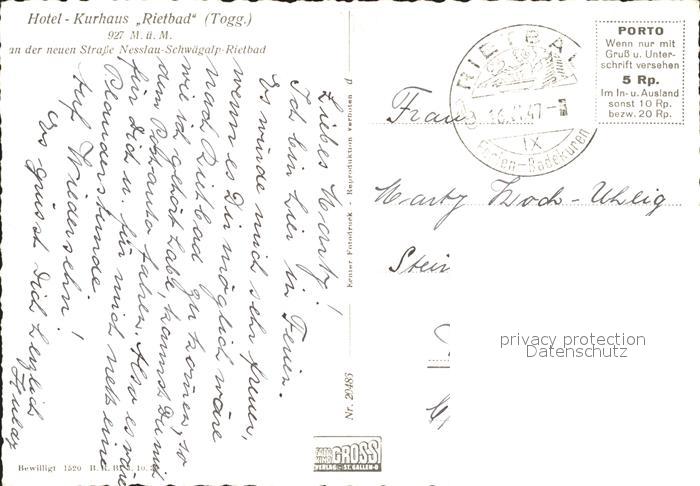 Hotel - Kurhaus „Rietbad“ (Togg.)
927 M. ü. M.
an der neuen Straße Nesslau-Schwägalp-Rietbad
Liebes Marty!
Ich bin hier in Ferien.
Es würde mich sehr freuen,
wenn es Dir möglich wäre
nach Rietbad zu kommen, so
wie ich gehört habe, kannst Du mit
dem Postauto fahren. Also es wäre
für Dich u. für mich nett eine
Plauderstunde.
Auf Wiedersehn!
Es grüsst Dich herzlich
Bewilligt 1520 B. R. B.
Nr. 20485
Reproduktion verboten
RIETBAD
47
IX
Ferien-Badekuren
PORTO
Wenn nur mit
Gruß u. Unter-
schrift versehen
5 Rp.
Im In- u. Ausland
sonst 10 Rp.
bezw. 20 Rp.
Frau
Marty Koch-Uhlig
Stein
privacy protection
Datenschutz
GROSS
VERLAG: ST. GALLEN-O